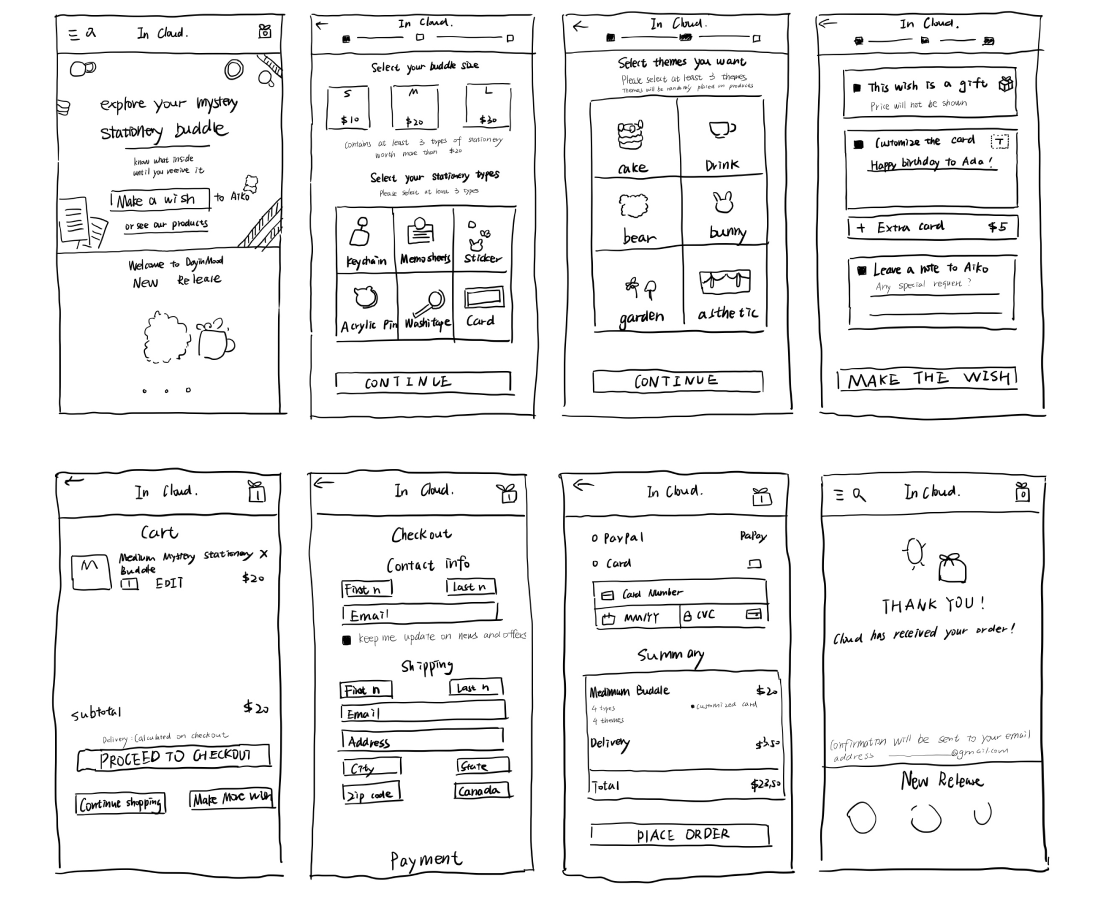 In Cloud.
explore your mystery
stationery buddle
know what inside
until you receive it
Make a wish to Aiko
or see our products
Welcome to DayinMood
New Release
In Cloud.
Select your buddle size
S M L
$10 $20 $30
Contains at least 3 types of stationery
worth more than $20
Select your stationery types
Please select at least 3 types
Keychain Memosheets Sticker
Acrylic Pin Washitape Card
CONTINUE
In Cloud.
Select themes you want
Please select at least 3 themes
Themes will be randomly placed on products
cake Drink
bear bunny
garden asthetic
CONTINUE
In Cloud.
This wish is a gift
Price will not be shown
Customize the card T
Happy birthday to Ada!
+ Extra card $5
Leave a note to Aiko
Any special request ?
MAKE THE WISH
In Cloud.
1
Cart
M
Medium Mystery Stationery X
Buddle
1 EDIT $20
subtotal $20
Delivery: Calculated on checkout
PROCEED TO CHECKOUT
Continue shopping Make More wish
In Cloud.
1
Checkout
Contact info
First n Last n
Email
keep me update on news and offers
Shipping
First n Last n
Email
Address
City State
Zip code Canada
Payment
In Cloud.
1
PayPal PaPay
Card
Card Number
MM/YY CVC
Summary
Medimum Buddle $20
4 types customized card
4 themes
Delivery $3.50
Total $23.50
PLACE ORDER
In Cloud.
0
THANK YOU!
Cloud has received your order!
Confirmation will be sent to your email
address @gmail.com
New Release